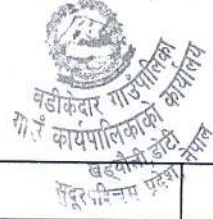 वडीकेदार गाउँपालिका
गाउँ कार्यपालिकाको कार्यालय
खड्यौली, डोटी
सुदूरपश्चिम प्रदेश, नेपाल